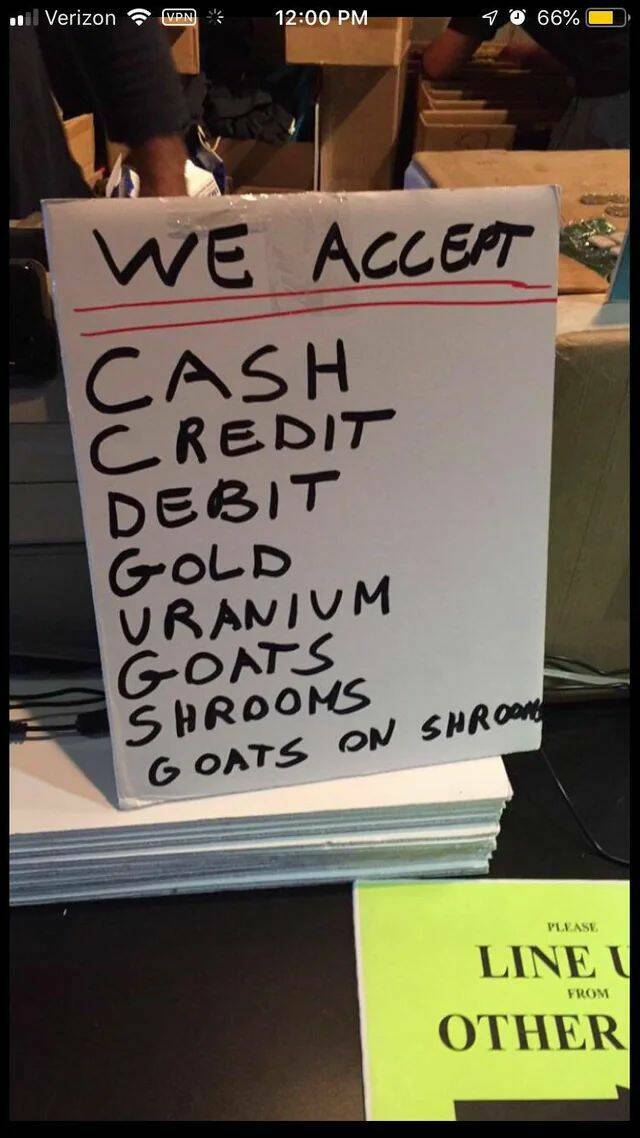 Verizon VPN 12:00 PM 66%
WE ACCEPT
CASH
CREDIT
DEBIT
GOLD
URANIUM
GOATS
SHROOMS
GOATS ON SHROOMS
PLEASE
LINE U
FROM
OTHER